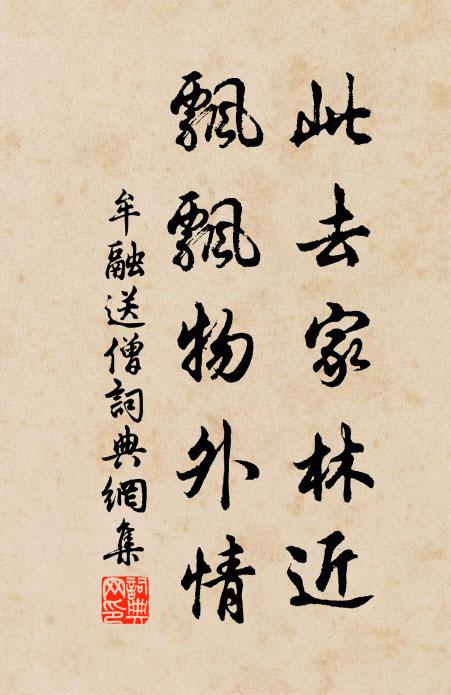 此去家林近
飄飄物外情
牟融送僧詞典網集
詞典
网印